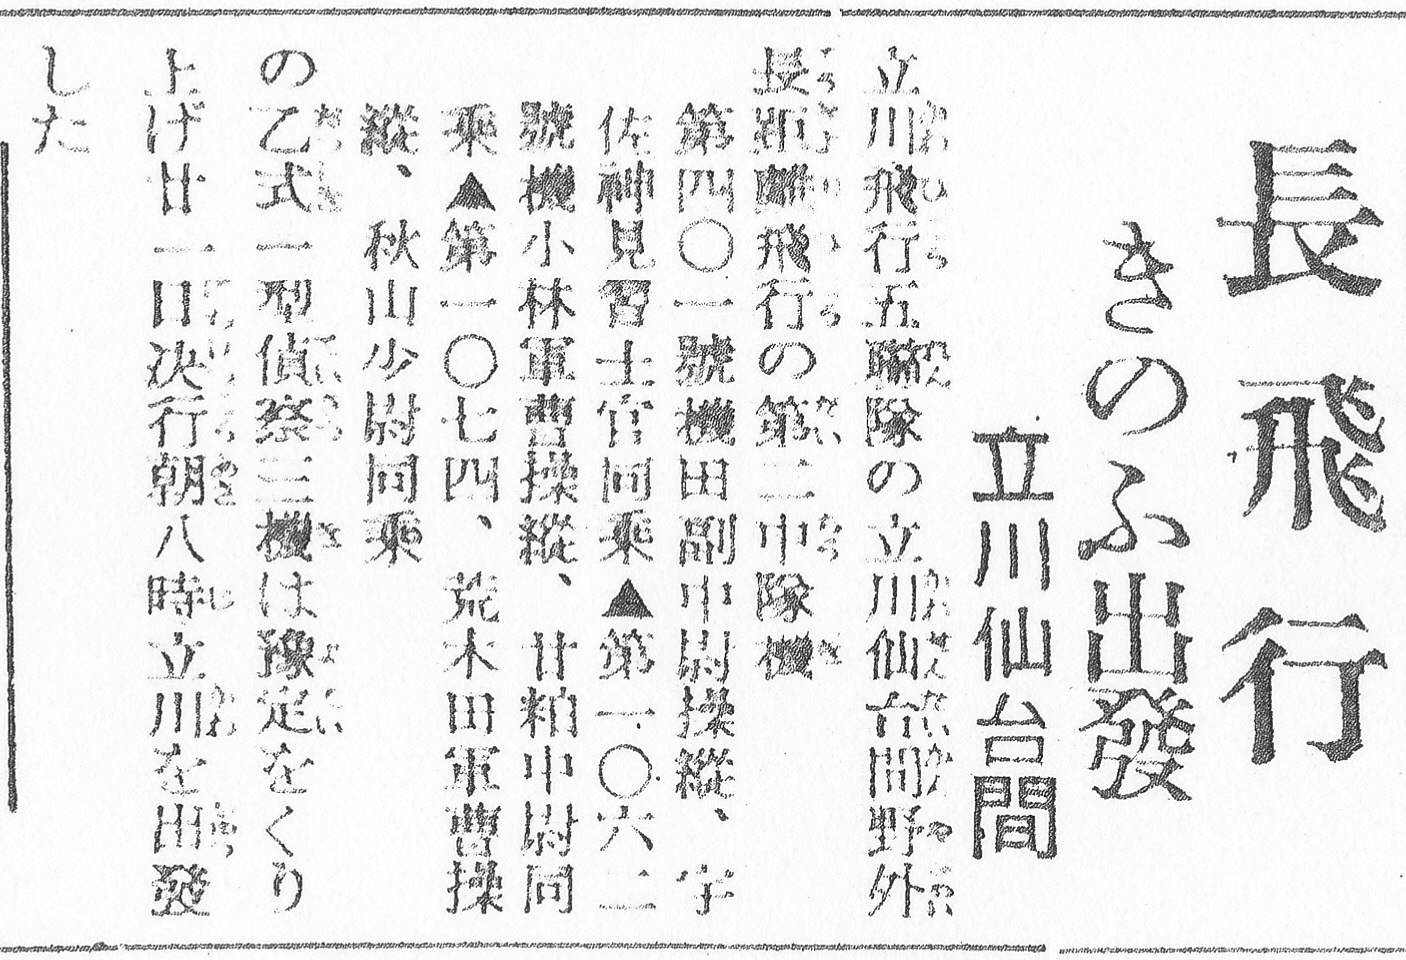 長飛行
きのふ出發
立川仙台間
立川飛行五聯隊の立川仙台間野外
長距離飛行の第二中隊機
第四〇一號機田副中尉操縱、宇
佐神見習士官同乘▲第一〇六二
號機小林軍曹操縱、廿粕中尉同
乘▲第一〇七四、荒木田軍曹操
縱、秋山少尉同乘
の乙式一型偵察三機は豫定をくり
上げ廿一日決行朝八時立川を出發
した